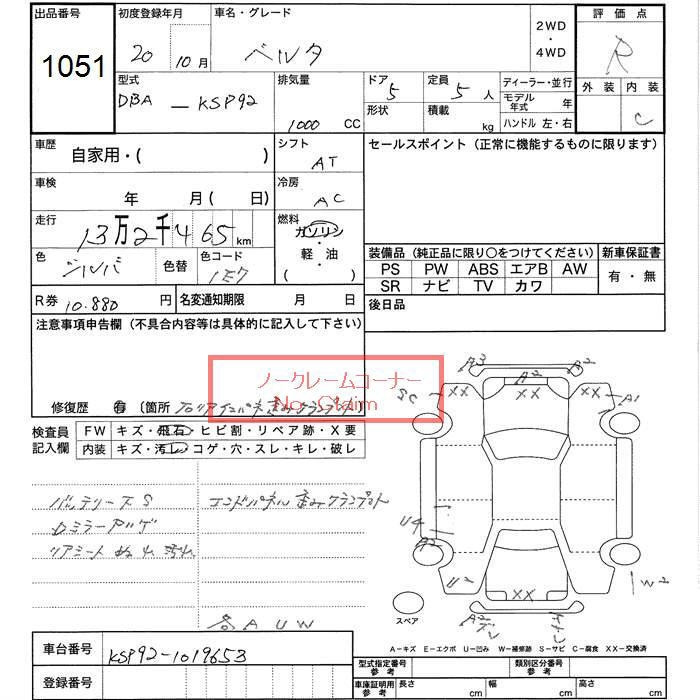 出品番号 初度登録年月 車名・グレード 2WD ・ 4WD 評価点
1051 20 10月 ベルタ R
外装 内装
C
型式 排気量 ドア 定員 ディーラー・並行
DBA-KSP92 1000 CC 5 5人 モデル年式 年
形状 積載 kg ハンドル 左・右
車歴 自家用・( ) シフト AT
セールスポイント(正常に機能するものに限ります)
車検 年 月( 日) 冷房 AC
走行 13万2千465km 燃料 ガソリン・軽油 ( )
色 シルバ 色替 色コード 1E7
装備品(純正品に限り○をつけてください) 新車保証書
PS PW ABS エアB AW 有・無
SR ナビ TV カワ
R券 10.880円 名変通知期限 月 日
後日品
注意事項申告欄(不具合内容等は具体的に記入して下さい)
ノークレームコーナー
No Claim
修復歴 有 (箇所
検査員記入欄 FW キズ・飛石・ヒビ割・リペア跡・X要
内装 キズ・汚レ・コゲ・穴・スレ・キレ・破レ
バッテリーナS
Dミラーアルゲ
エンドパネル歪みクランプト
各AUW
A3 A2 A2
XX XX A1
U4
A2
U2 XX W2
スペア
A-キズ E-エクボ U-凹み W-補修跡 S-サビ C-腐食 XX-交換済
車台番号 KSP92-1019653
登録番号
型式指定番号 参考 類別区分番号 参考
車庫証明用 参考 長さ cm 幅 cm 高さ cm